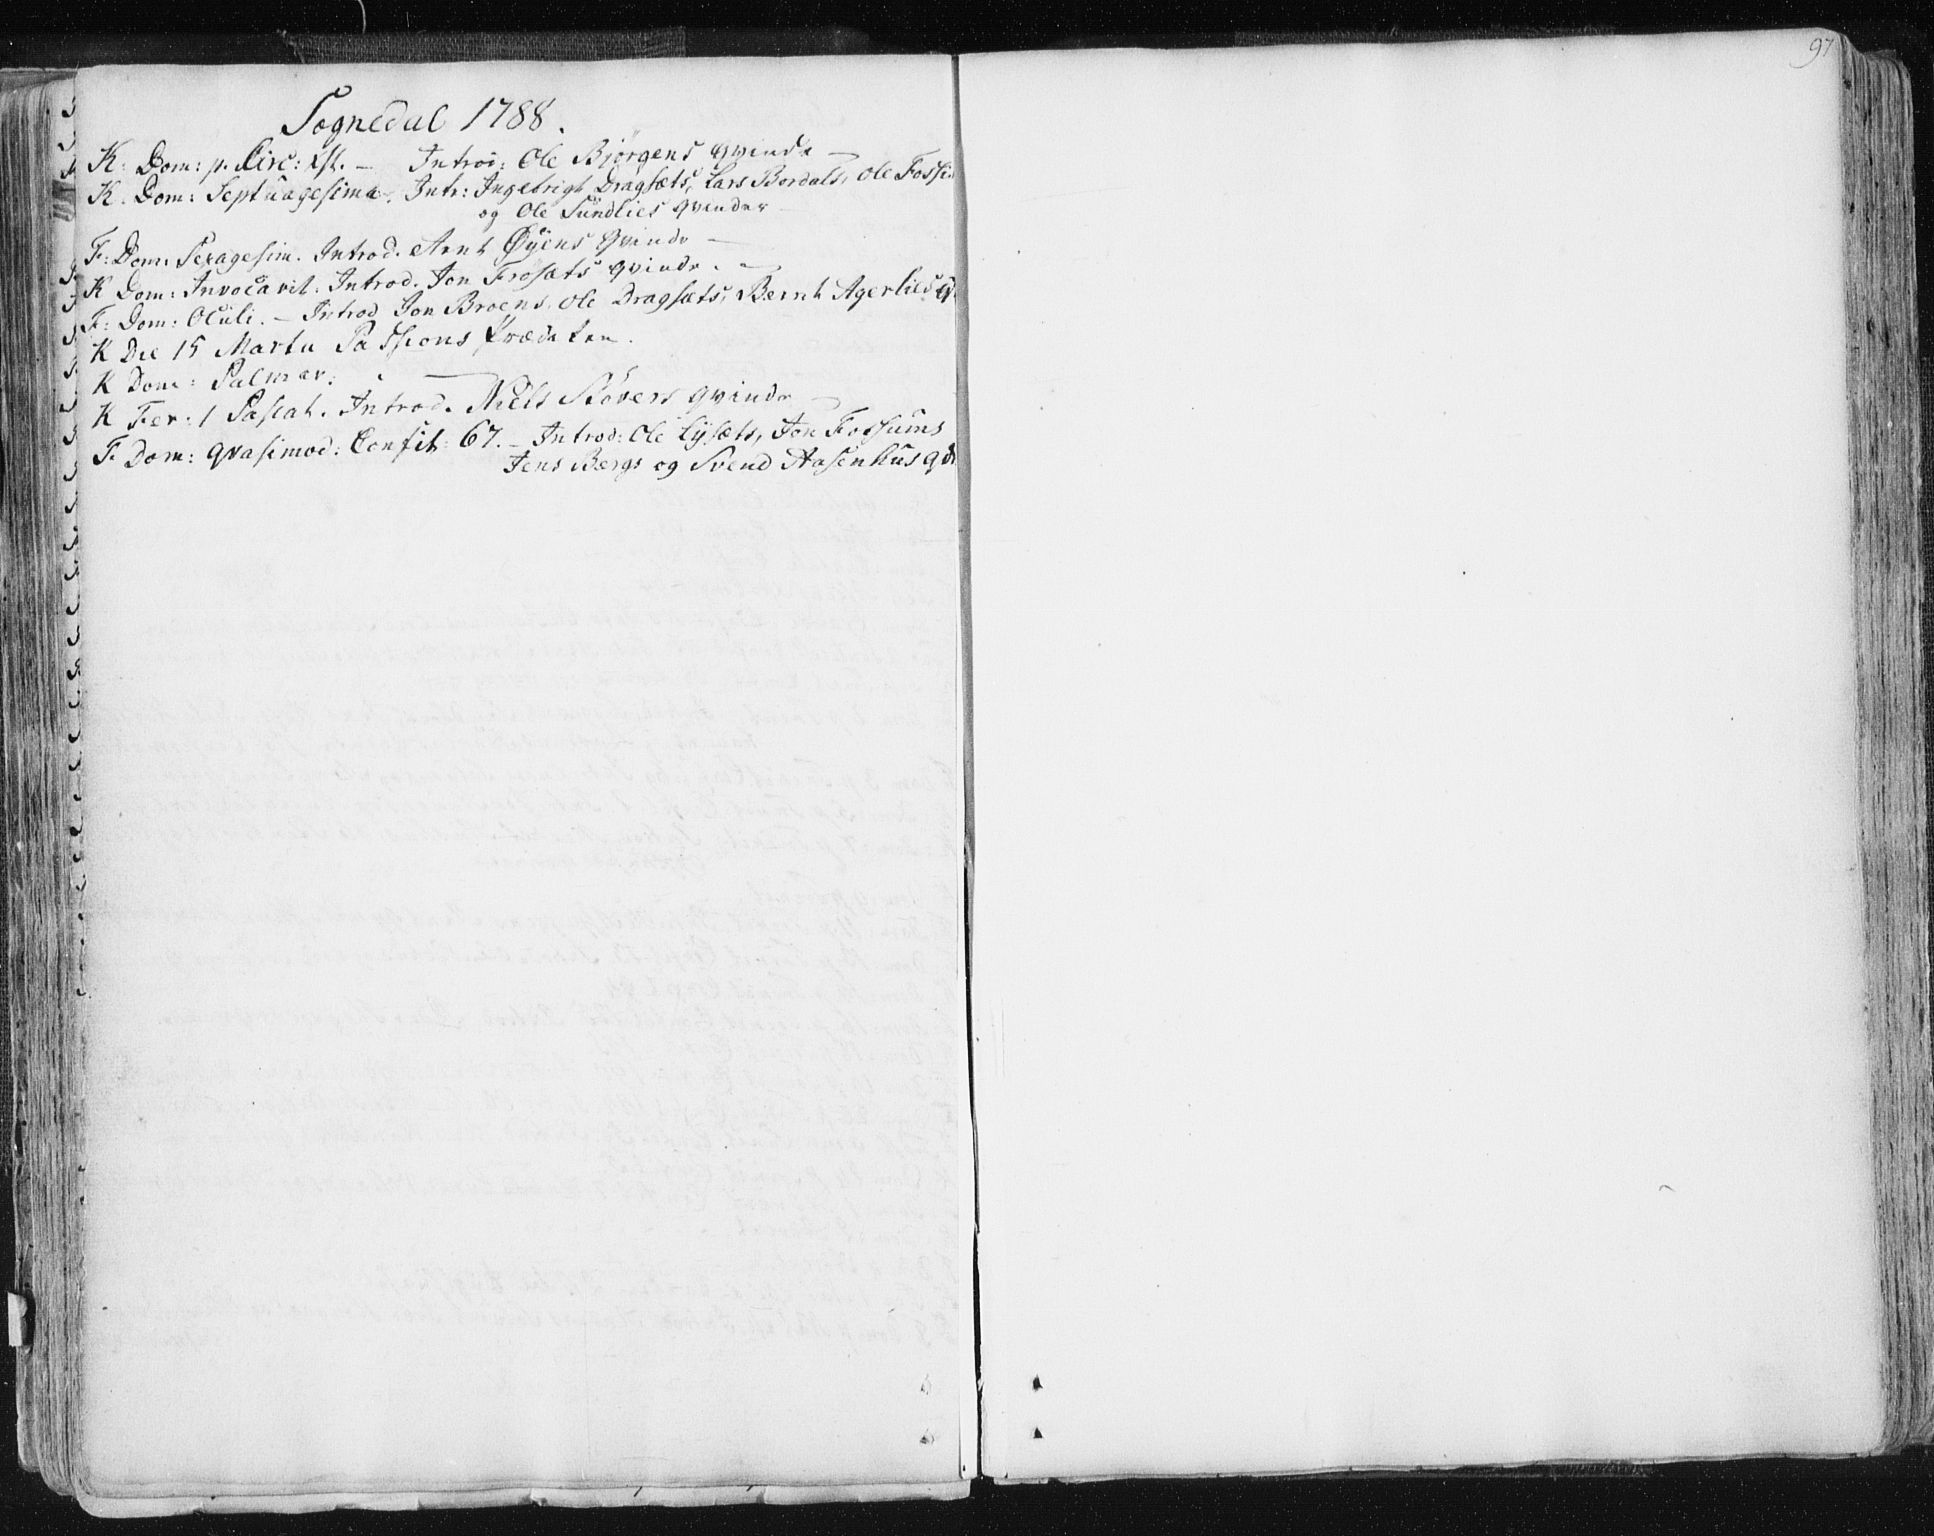 Sognedal 1788.
K. Dom: p. Circ: Xst. — Introd: Ole Bjørgens qvinde —
K. Dom: Septuagesima. Intr: Ingebrigt Dragsæts, Lars Bordals, Ole Fossi
og Ole Sundlies qvinder —
F: Dom: Sexagesim. Introd. Arnt Øyens Qvinde —
K Dom: Invocavit. Introd. Jon Frosæts qvinde. —
F: Dom: Oculi. — Introd Jon Broens, Ole Dragsæts, Bernt Agerlies q
K Die 15 Martii Passions Prædiken.
K Dom: Palmar: —
K Fer: 1 Pascat. Introd. Niels Støvers qvinde —
F Dom: qvasimod: Confit: 67. — Introd: Ole Lysæts, Jon Fossums
Jens Bergs og Svend Aasenhus q
97